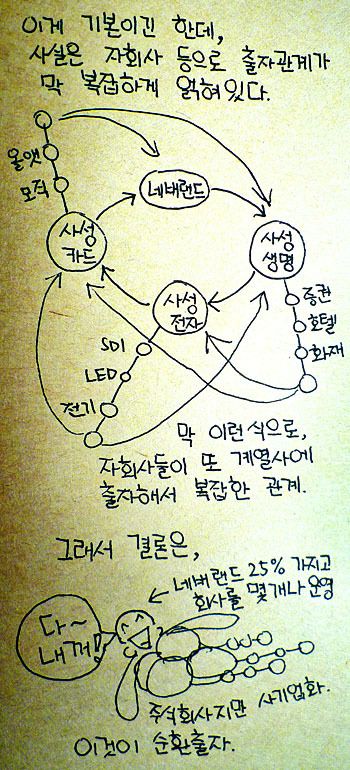 이게 기본이긴 한데,
사실은 자회사 등으로 출자관계가
막 복잡하게 얽혀있다.
올앳
모직
네버랜드
사성
카드
사성
생명
사성
전자
증권
호텔
화재
SDI
LED
전기
막 이런식으로,
자회사들이 또 계열사에
출자해서 복잡한 관계.
그래서 결론은,
← 네버랜드 25% 가지고
회사를 몇개나 운영
다~
내꺼!
주식회사지만 사기업화.
이것이 순환출자.